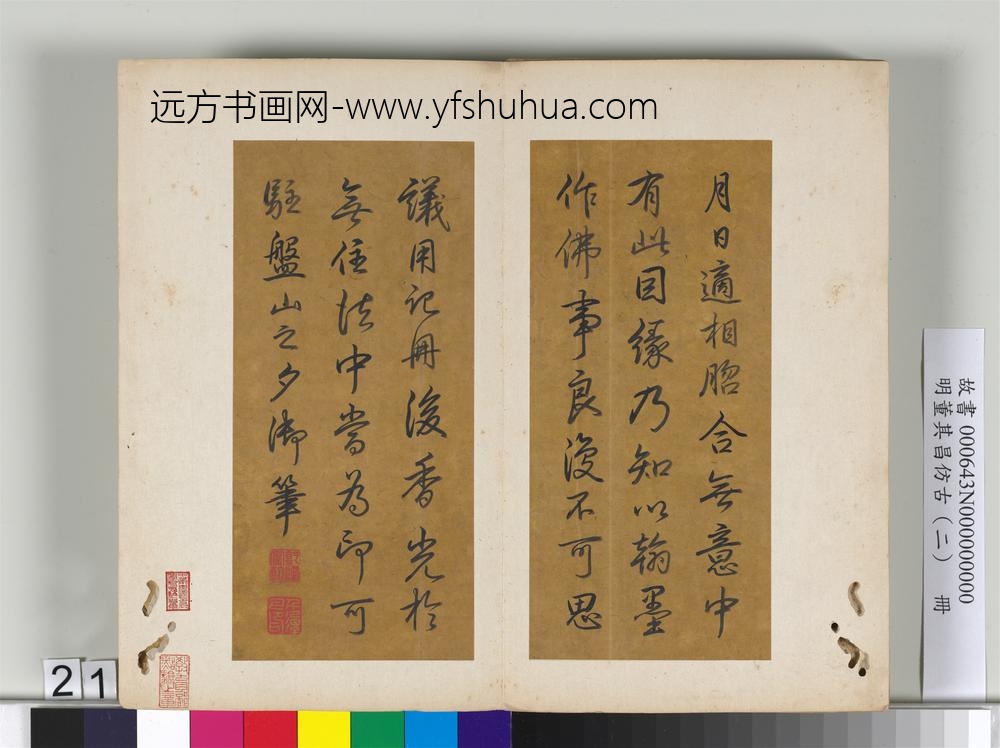 远方书画网-www.yfshuhua.com
月日適相脗合無意中
有此因緣乃知以翰墨
作佛事良復不可思
議用記冊後香光於
無住法中當為印可
駐盤山之夕御筆
故書 000643N000000000
明董其昌仿古(二) 冊
21